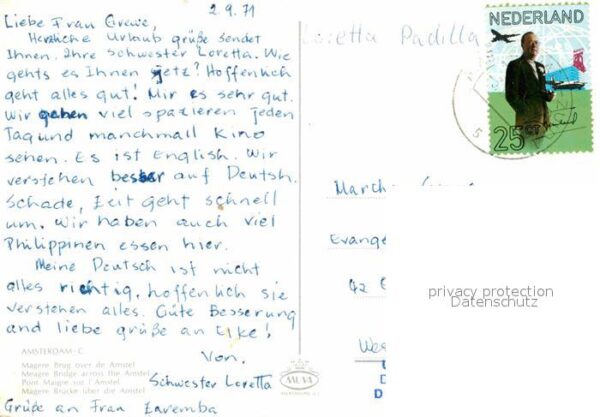 2.9.71
Liebe Frau Grewe,
Herzliche Urlaub grüße sendet
Ihnen. Ihre Schwester Loretta. Wie
gehts es Ihnen jetz? Hoffenlich
geht alles gut! Mir es sehr gut.
Wir gehen viel spazieren jeden
Tag und manchmall Kino
sehen. Es ist English. Wir
verstehen besser auf Deutsh.
Schade, Zeit geht schnell
um. Wir haben auch viel
Philippinen essen hier.
Meine Deutsch ist nicht
alles richtig, hoffenlich sie
verstehen alles. Gute Besserung
and liebe grüße an Elke!
Von,
Schwester Loretta
Grüße an Frau Zaremba
AMSTERDAM-C
Magere Brug over de Amstel
Meagre Bridge across the Amstel
Pont Maigre sur l'Amstel
Magere Brücke über die Amstel
MUVA
Loretta Padilla
NEDERLAND
25 CT
5
Evange
42
We
D
privacy protection
Datenschutz